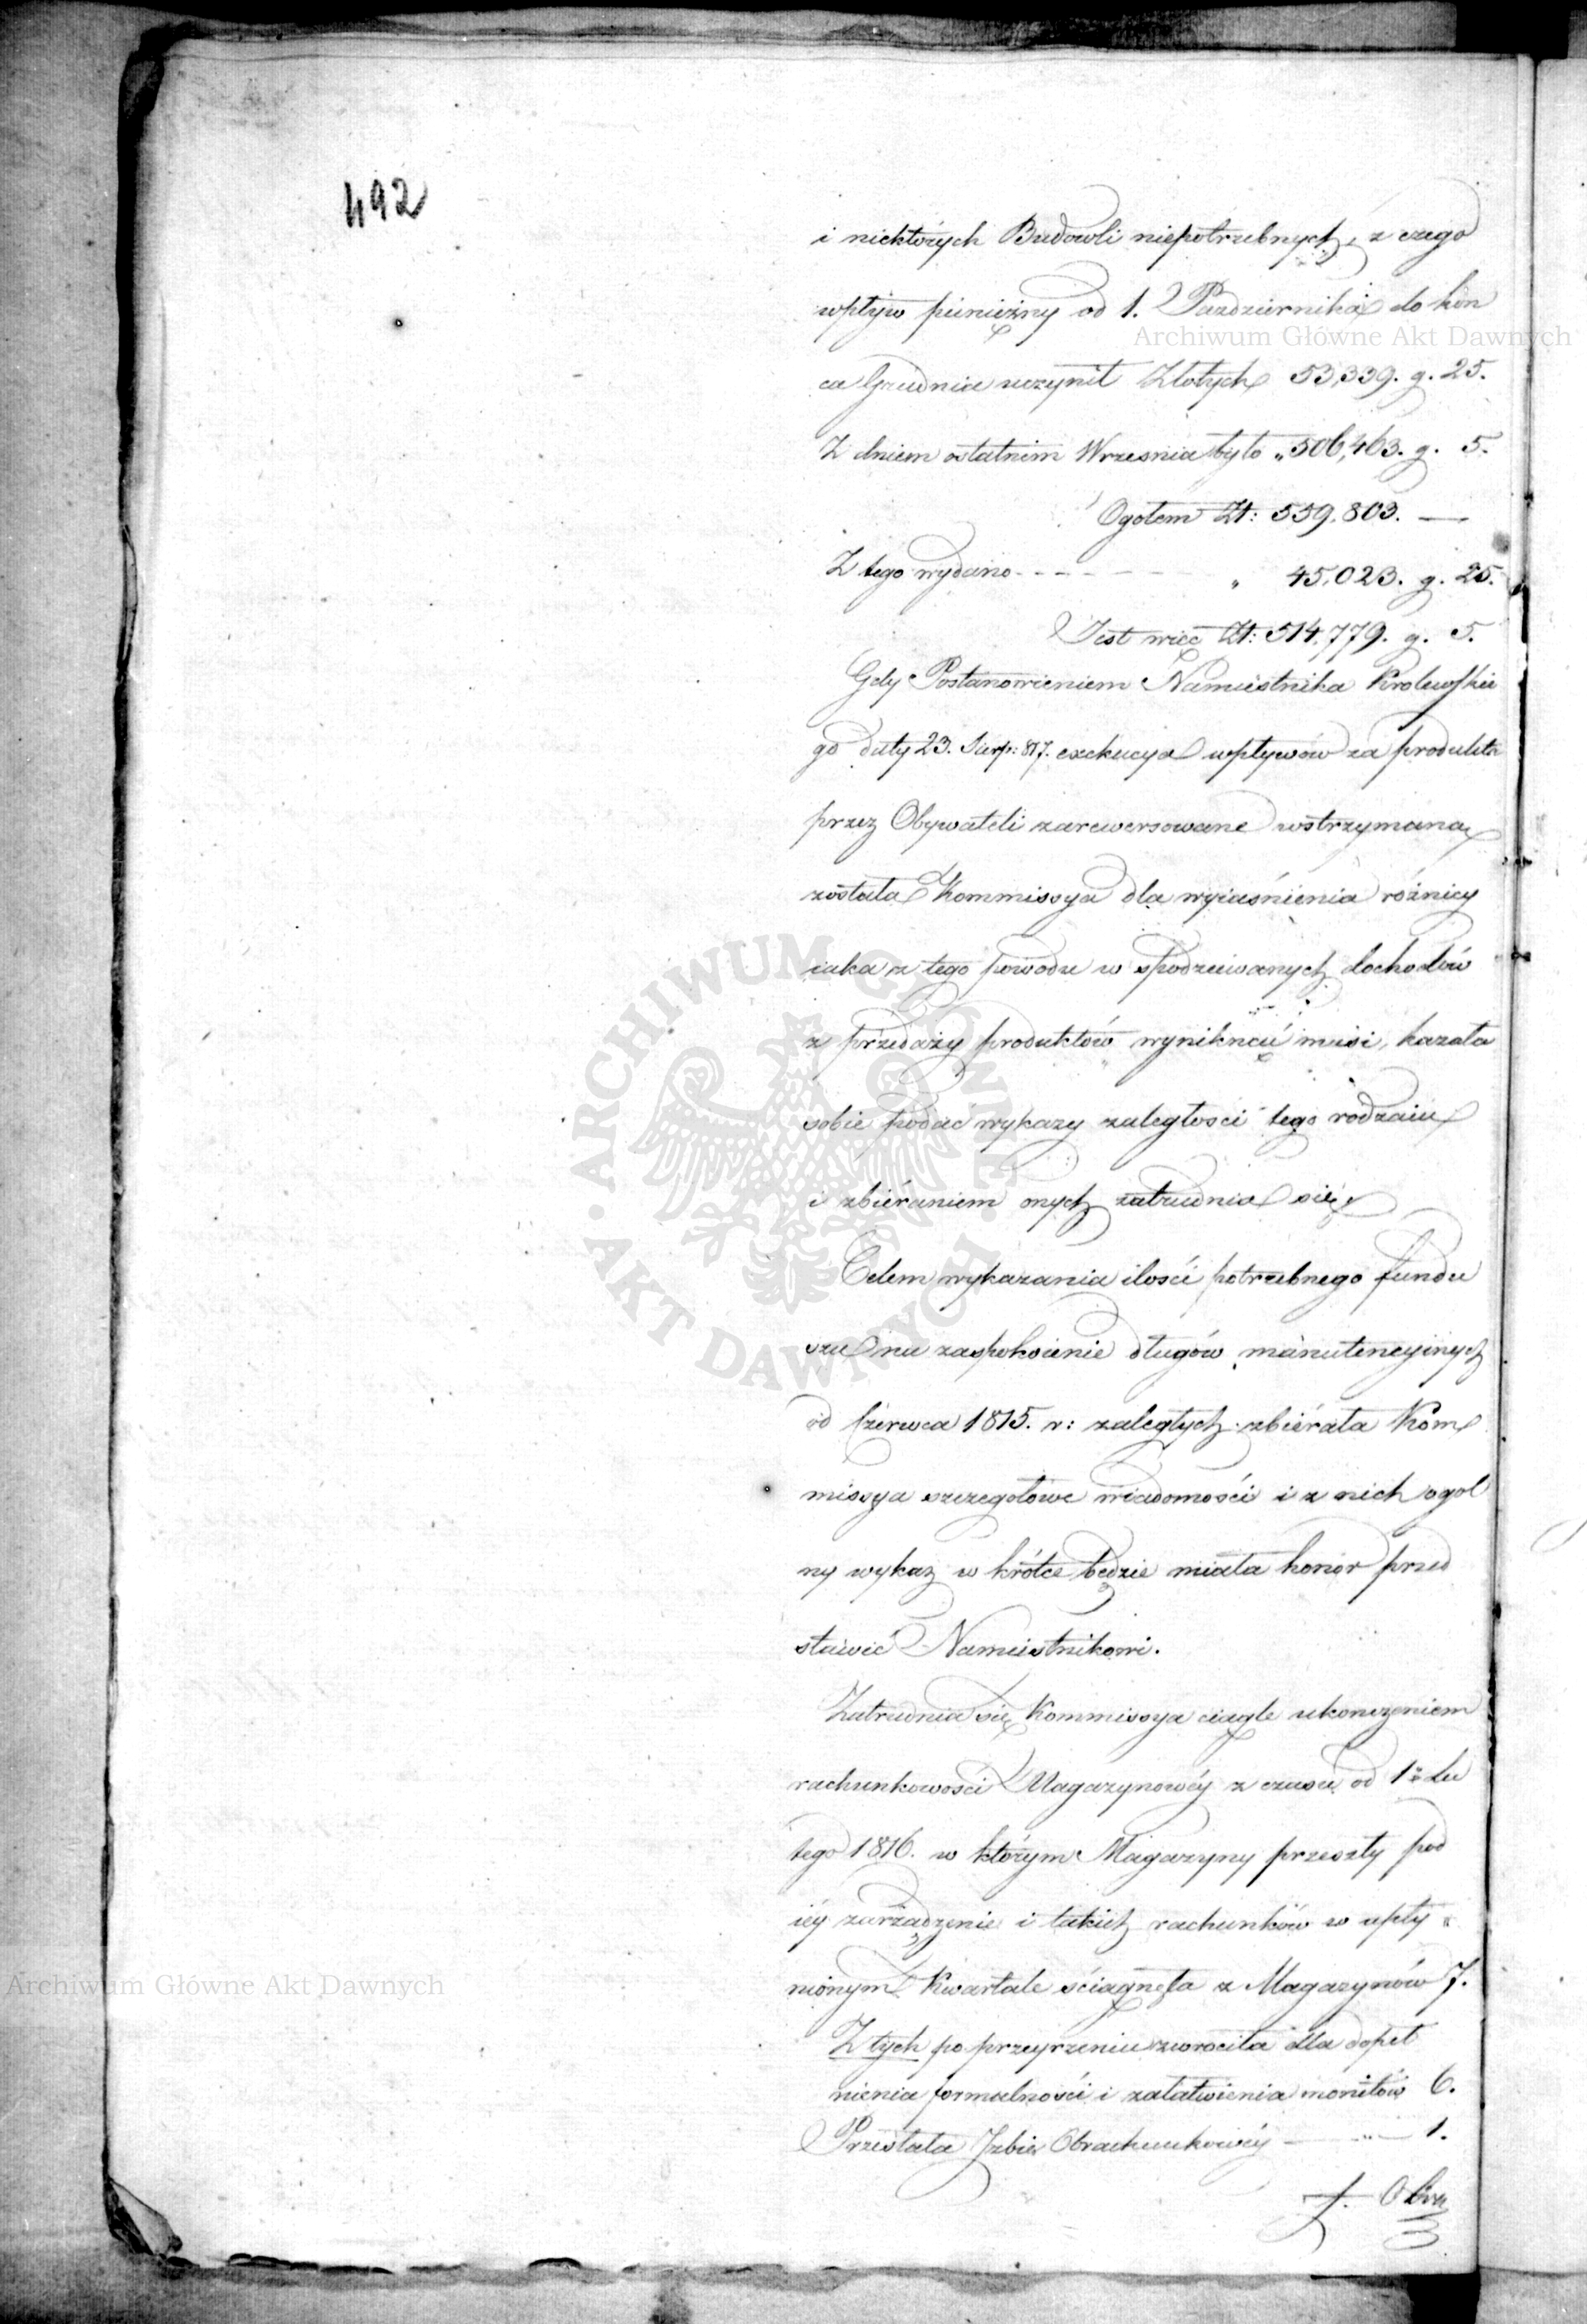 492
i niektórych Budowli niepotrzebnych, z czego
wpływ pieniężny od 1. Pazdziernika do koń
ca Grudnia uczynił Złotych 53,339. g. 25.
Z dniem ostatnim Wrzesnia było „ 506,463. g. 5.
Ogołem Zł: 559,803. —
Z tego wydano - - - - „ 45,023. g. 25.
Jest więc Zł: 514,779. g. 5.
Gdy Postanowieniem Namiestnika Krolewskie
go daty 23. Sierp: 817. exekucya wpływów za produkta
przez Obywateli zarewersowane wstrzymaną
została Kommissya dla wyiaśnienia różnicy
iaka z tego powodu w spodziewanych dochodów
z przedaży produktów wyniknąć musi, kazała
sobie podać wykazy zaległosci tego rodzaiu
i zbiéraniem onych zatrudnia się.
Celem wykazania ilości potrzebnego fundu
szu na zaspokoienie długów manutencyinych
od Czerwca 1815. r: zaległych zbiérała Kom
missya szczegołowe wiadomości i z nich ogol
ny wykaz w krótce będzie miała honor przed
stawić Namiestnikowi.
Zatrudnia się Kommissya ciągle ukonczeniem
rachunkowosci Magazynowéy z czasu od 1o Lu
tego 1816. w którym Magazyny przeszły pod
iéy zarządzenie i takich rachunków w upły
nionym Kwartale ściągnęła z Magazynów 7.
Z tych po przeyrzeniu zwrociła dla dopeł
nienia formalności i załatwienia monitów 6.
Przesłała Jzbie Obrachunkowéy — „ — 1.
f. Obra
Archiwum Główne Akt Dawnych
ARCHIWUM GŁÓWNE · AKT DAWNYCH ·
Archiwum Główne Akt Dawnych